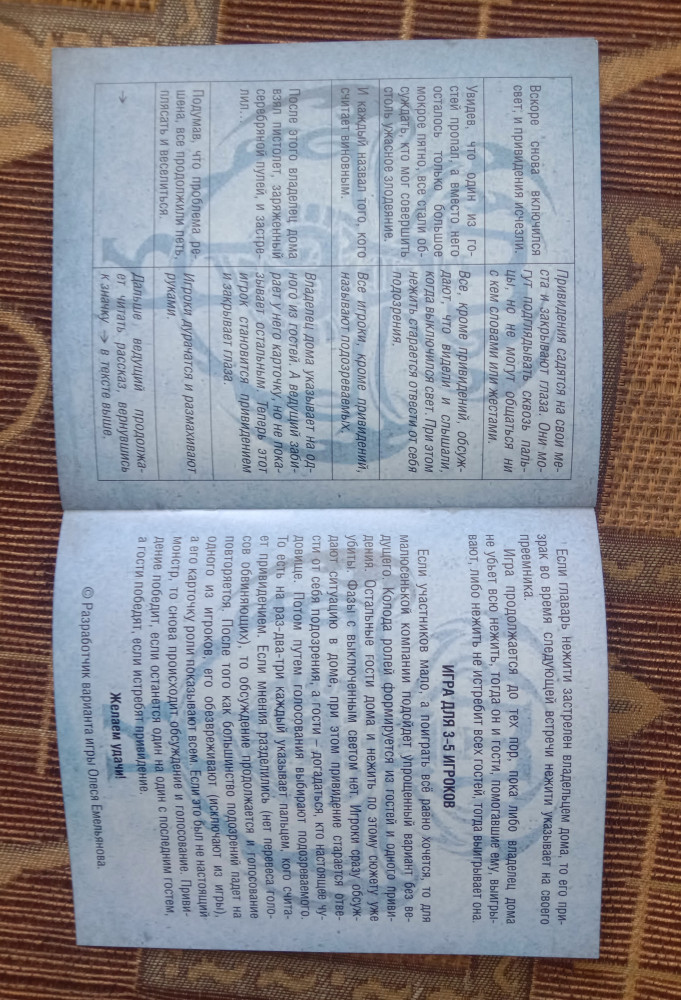 Вскоре снова включился
свет, и привидения исчезли.
Привидения садятся на свои ме-
ста и закрывают глаза. Они мо-
гут подглядывать сквозь паль-
цы, но не могут общаться ни
с кем словами или жестами.
Увидев, что один из го-
стей пропал, а вместо него
осталось только большое
мокрое пятно, все стали об-
суждать, кто мог совершить
столь ужасное злодеяние.
Все, кроме привидений, обсуж-
дают, что видели и слышали,
когда выключился свет. При этом
нежить старается отвести от себя
подозрения.
И каждый назвал того, кого
считает виновным.
Все игроки, кроме привидений,
называют подозреваемых.
После этого владелец дома
взял пистолет, заряженный
серебряной пулей, и застре-
лил...
Владелец дома указывает на од-
ного из гостей. А ведущий заби-
рает у него карточку, но не пока-
зывает остальным. Теперь этот
игрок становится привидением
и закрывает глаза.
Подумав, что проблема ре-
шена, все продолжили петь,
плясать и веселиться.
Игроки дурачатся и размахивают
руками.
→
Дальше ведущий продолжа-
ет читать рассказ, вернувшись
к значку → в тексте выше.
Если главарь нежити застрелен владельцем дома, то его при-
зрак во время следующей встречи нежити указывает на своего
преемника.
Игра продолжается до тех пор, пока либо владелец дома
не убьет всю нежить, тогда он и гости, помогавшие ему, выигры-
вают, либо нежить не истребит всех гостей, тогда выигрывает она.
ИГРА ДЛЯ 3–5 ИГРОКОВ
Если участников мало, а поиграть всё равно хочется, то для
малюсенькой компании подойдет упрощенный вариант без ве-
дущего. Колода ролей формируется из гостей и одного приви-
дения. Остальные гости дома и нежить по этому сюжету уже
убиты. Фазы с выключенным светом нет. Игроки сразу обсуж-
дают ситуацию в доме, при этом привидение старается отве-
сти от себя подозрения, а гости – догадаться, кто настоящее чу-
довище. Потом путем голосования выбирают подозреваемого.
То есть на раз-два-три каждый указывает пальцем, кого счита-
ет привидением. Если мнения разделились (нет перевеса голо-
сов обвиняющих), то обсуждение продолжается и голосование
повторяется. После того как большинство подозрений падет на
одного из игроков, его обезвреживают (исключают из игры),
а его карточку роли показывают всем. Если это был не настоящий
монстр, то снова происходит обсуждение и голосование. Приви-
дение победит, если останется один на один с последним гостем,
а гости победят, если истребят привидение.
Желаем удачи!
© Разработчик варианта игры Олеся Емельянова.